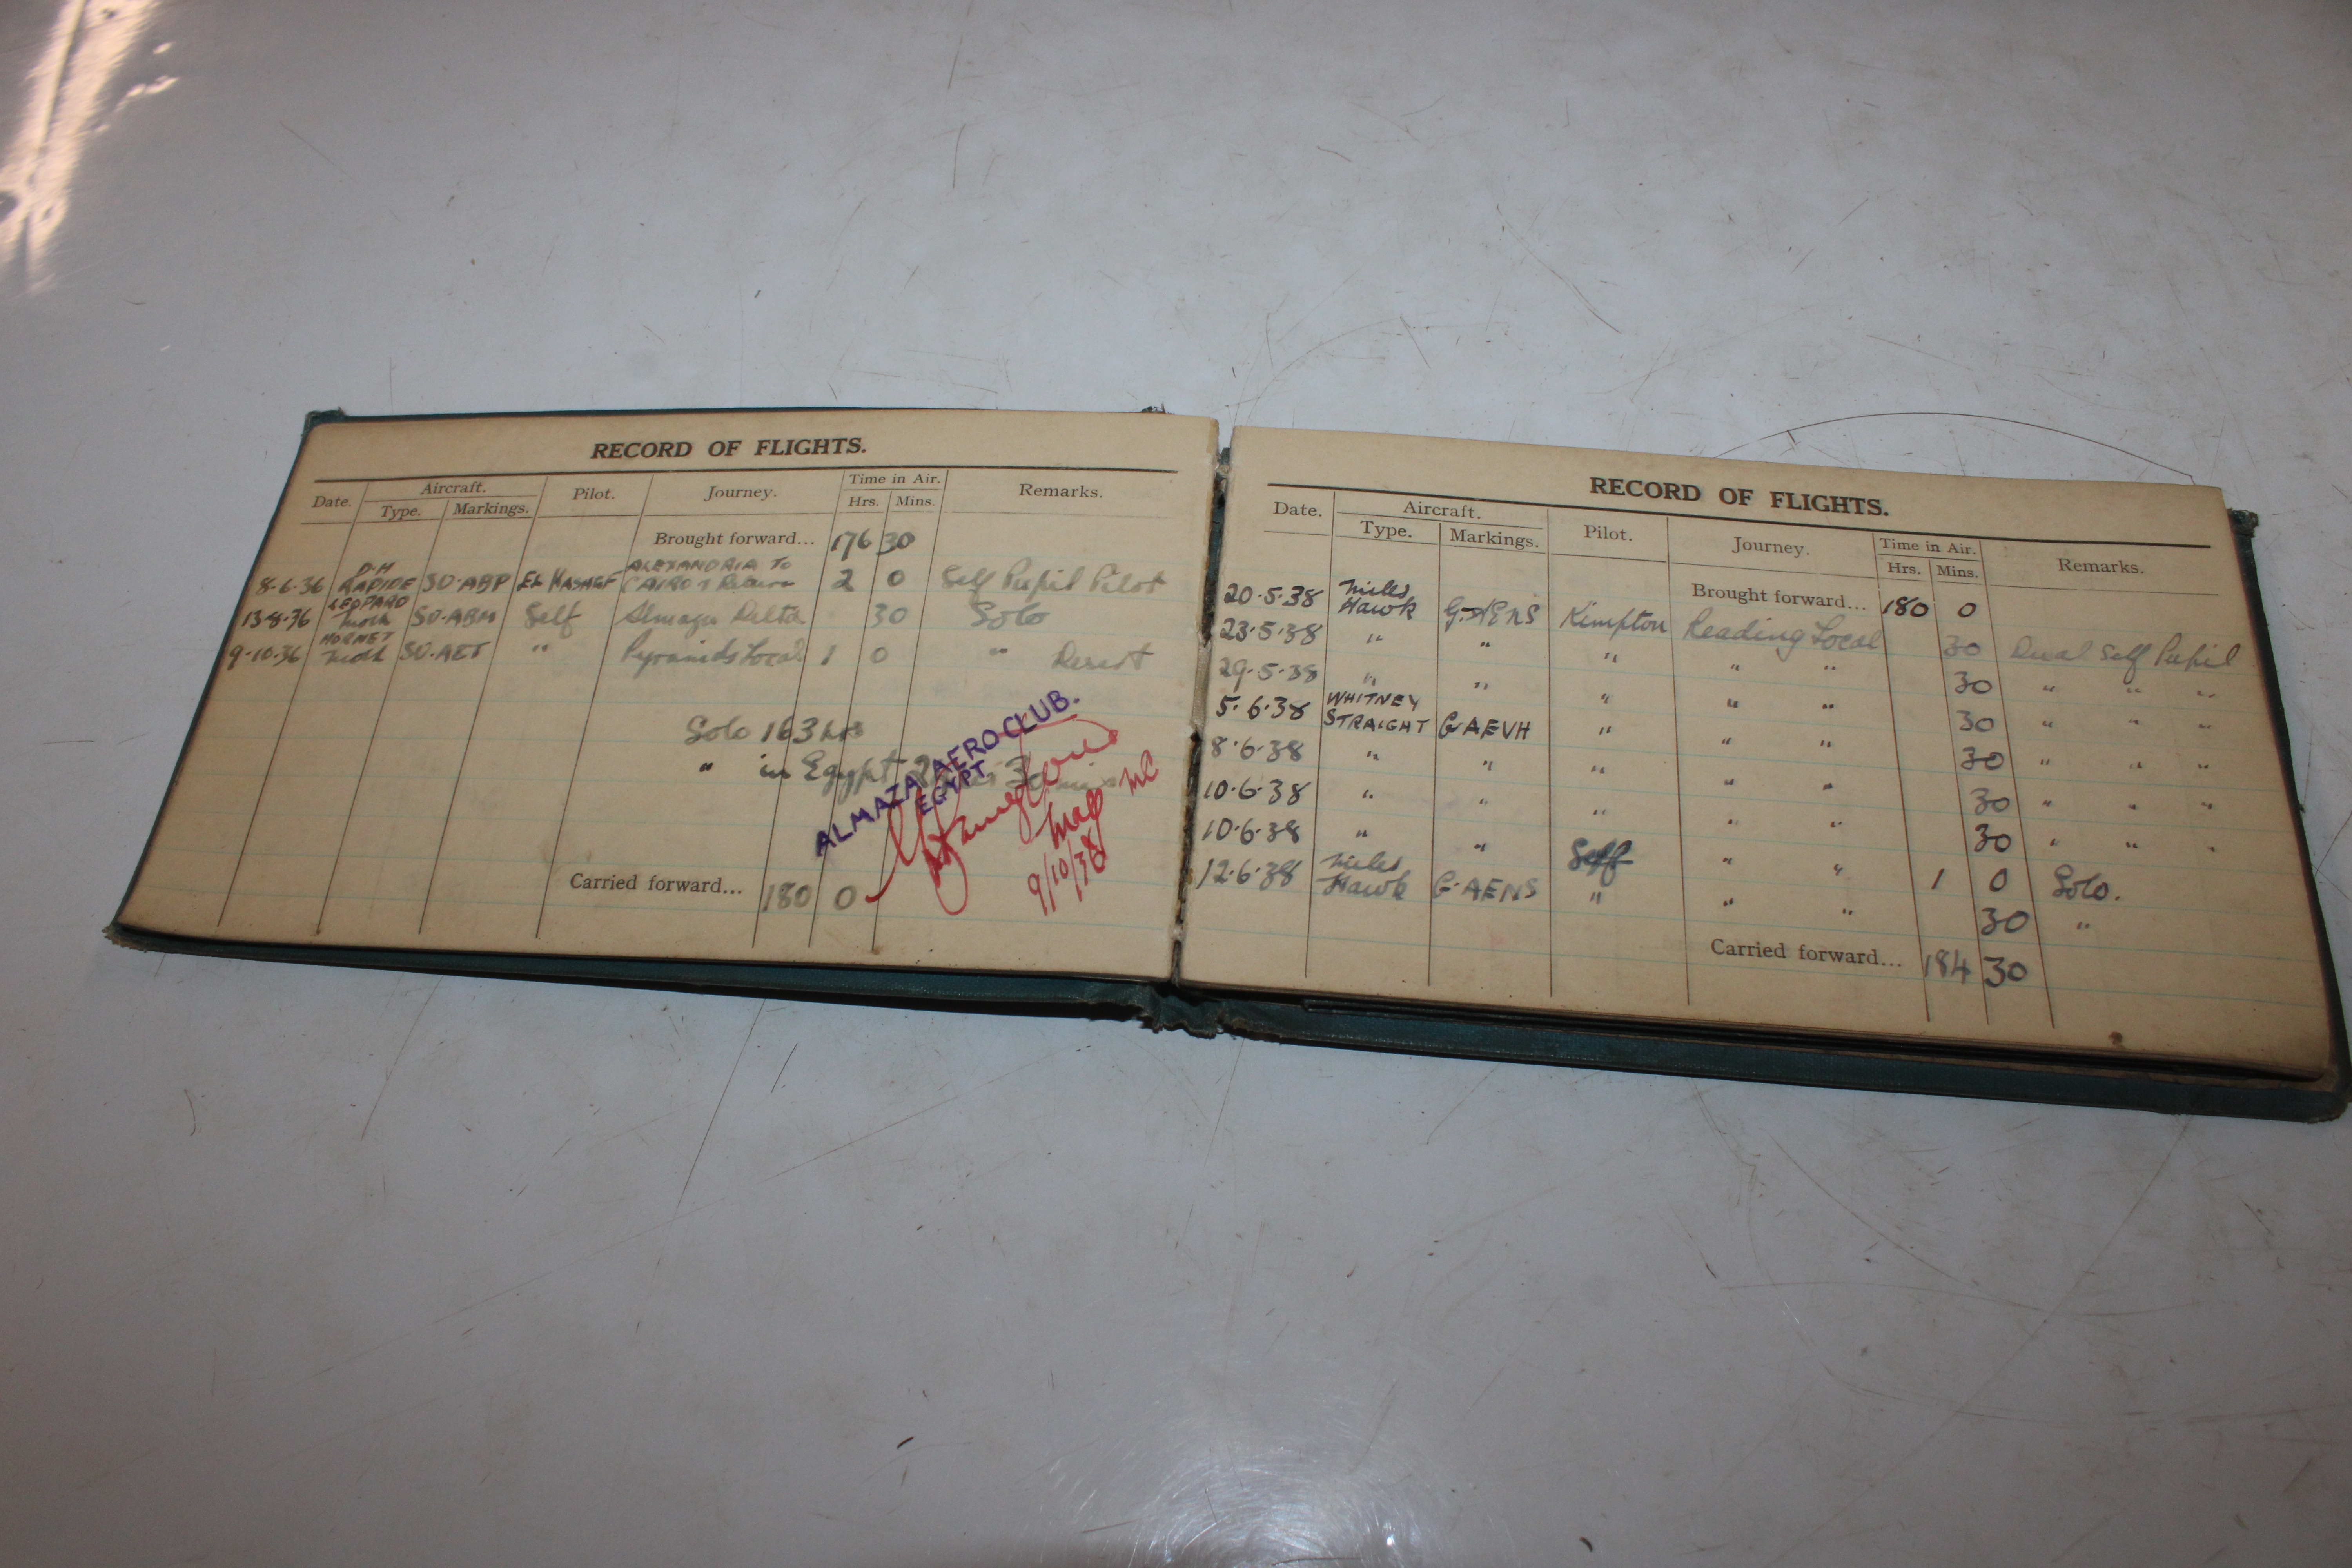 RECORD OF FLIGHTS.
Date. Aircraft. Type. Markings. Pilot. Journey. Time in Air. Hrs. Mins. Remarks.
Brought forward... 176 30
8-6-36 D-H RAPIDE SU-ABP EL ALEXANDRIA TO CAIRO & Return 2 0 Self Pupil Pilot
13-8-36 LEOPARD Moth SU-ABM Self Delta 30 Solo
9-10-36 HORNET Moth SU-AET " Pyramids Local 1 0 " Desert
Solo 163 hrs
" in Egypt
ALMAZA AERO CLUB.
EGYPT
9/10/36
Carried forward... 180 0
RECORD OF FLIGHTS.
Date. Aircraft. Type. Markings. Pilot. Journey. Time in Air. Hrs. Mins. Remarks.
Brought forward... 180 0
20·5·38 Miles Hawk G-AENS Kimpton Reading Local 30 Dual Self Pupil
23·5·38 " " " " " 30 " " "
29·5·38 " " " " " 30 " " "
5·6·38 WHITNEY STRAIGHT G-AEVH " " " 30 " " "
8·6·38 " " " " " 30 " " "
10·6·38 " " " " " 30 " " "
10·6·38 " " Self " " 1 0 Solo.
12·6·38 Miles Hawk G-AENS " " " 30 "
Carried forward... 184 30